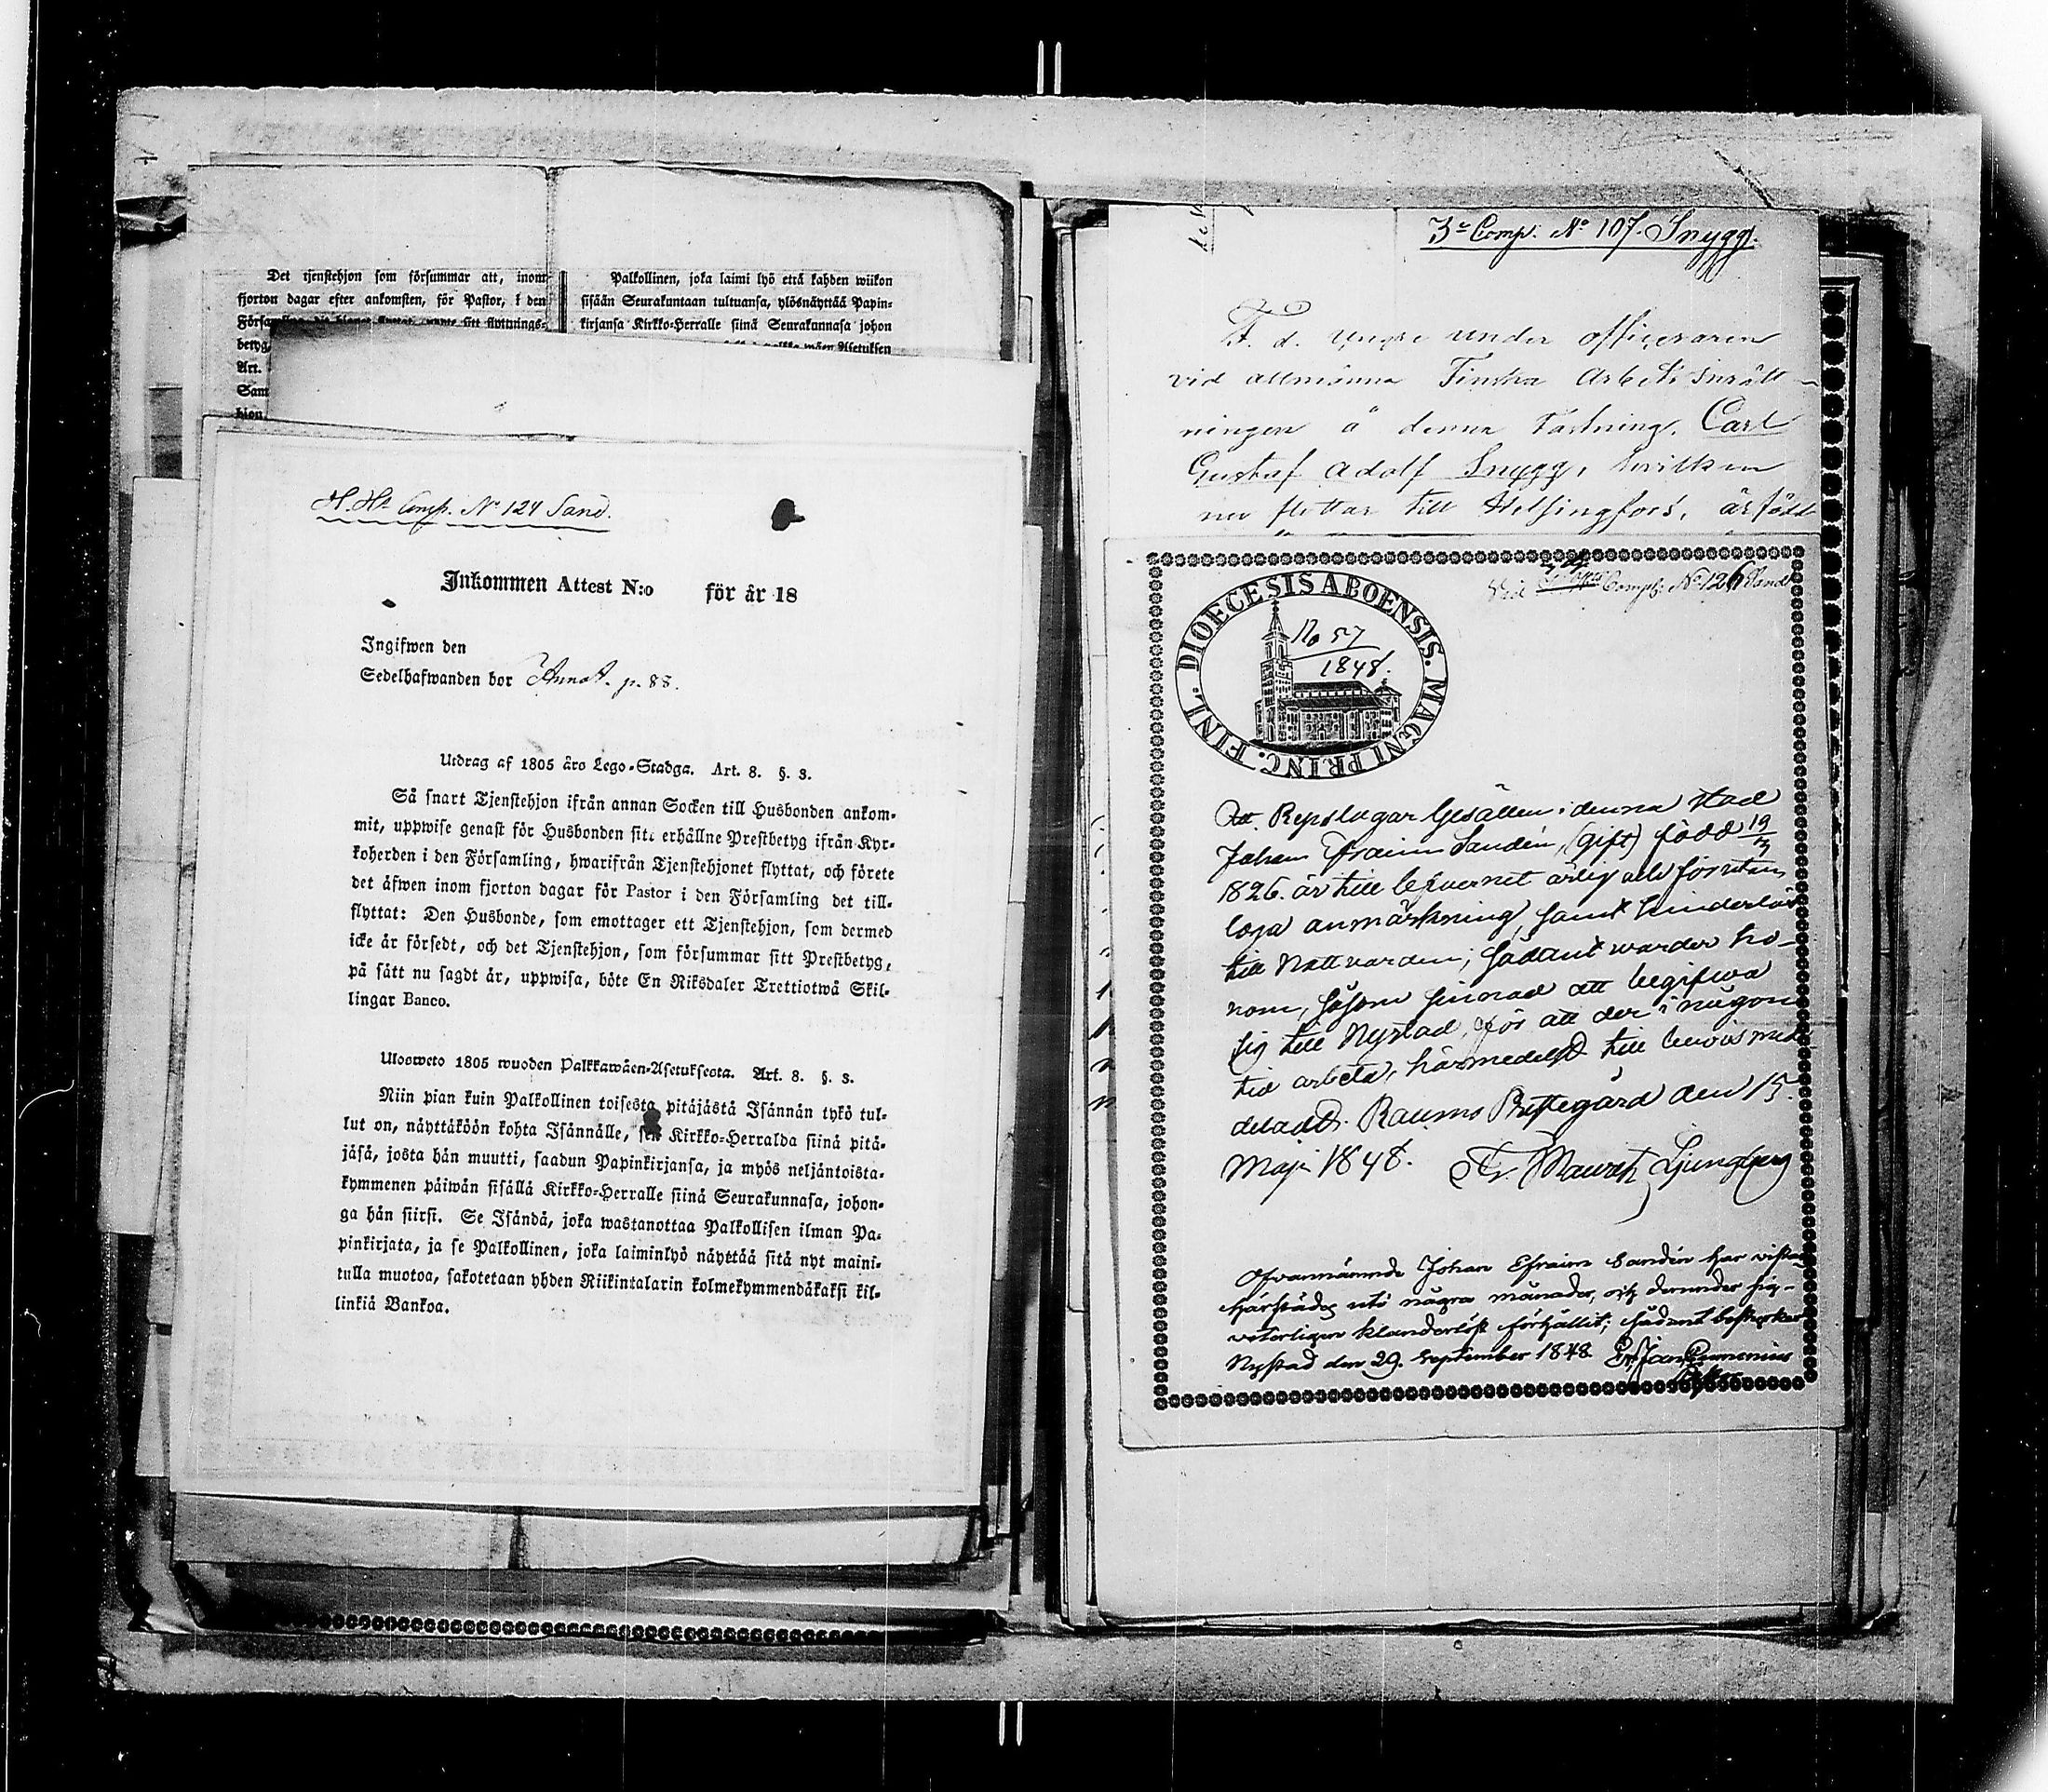 Det tjenstehjon som försummar att, inom
fjorton dagar efter ankomsten, för Pastor, i den
betyg
Art.
hjon
Palkollinen, joka laimi lyö että kahden wiikon
sisään Seurakuntaan tultuansa, ylösnäyttää Papin-
kirjansa Kirkko-Herralle siinä Seurakunnasa johon
Asetuksen
H. Ht Comp. No 124 Sand.
Inkommen Attest N:o för år 18
Ingifwen den
Sedelhafwanden bor Anna A. p. 88.
Utdrag af 1805 års Lego-Stadga. Art. 8. §. 3.
Så snart Tjenstehjon ifrån annan Socken till Husbonden ankom-
mit, uppwise genast för Husbonden sitt erhållne Prestbetyg ifrån Kyr-
koherden i den Församling, hwarifrån Tjenstehjonet flyttat, och förete
det äfwen inom fjorton dagar för Pastor i den Församling det till-
flyttat: Den Husbonde, som emottager ett Tjenstehjon, som dermed
icke är försedt, och det Tjenstehjon, som försummar sitt Prestbetyg,
på sätt nu sagdt är, uppwisa, böte En Riksdaler Trettiotwå Skil-
lingar Banco.
Ulosweto 1805 wuoden Palkkawäen-Asetuksesta. Art. 8. §. 3.
Niin pian kuin Palkollinen toisesta pitäjästä Isännän tykö tul-
lut on, näyttäköön kohta Isännälle, sen Kirkko-Herralda siinä pitä-
jäsä, josta hän muutti, saadun Papinkirjansa, ja myös neljäntoista-
kymmenen päiwän sisällä Kirkko-Herralle siinä Seurakunnasa, johon-
ga hän siirsi. Se Isändä, joka wastanottaa Palkollisen ilman Pa-
pinkirjata, ja se Palkollinen, joka laiminlyö näyttää sitä nyt maini-
tulla muotoa, sakotetaan yhden Riikintalarin kolmekymmendäkaksi kil-
linkiä Bankoa.
3e Comp. No 107. Snygg.
F. d. Yngre under officeraren
vid allmänna Finska Arbetsinrätt-
ningen å denna Fästning, Carl
Gustaf Adolf Snygg, hvilken
nu flyttar till Helsingfors, är född
Comp: No 126 Sand
DIOECESIS ABOENSIS. MAGNI PRINC. FINL.
No 57
1848.
Att Repslagar Gesällen i denna stad
Johan Efraim Sandén, (gift) född 19/3
1826. är till lefvernet ärlig och förutan
laga anmärkning, samt hinderlös
till Nattvarden; sådant warder ho-
nom, såsom sinnad att begifwa
sig till Nystad, för att der i någon
tid arbeta, härmedelst till bewis med-
deladt. Raumo Prestegård den 15.
Maji 1848. Fr. Mauritz Ljungberg
Ofvannämnde Johan Efraim Sandén har vistats
härstädes uti några månader, och derunder sig
veterligen klanderlöst förhållit; sådant bestyrker
Nystad den 29. September 1848.